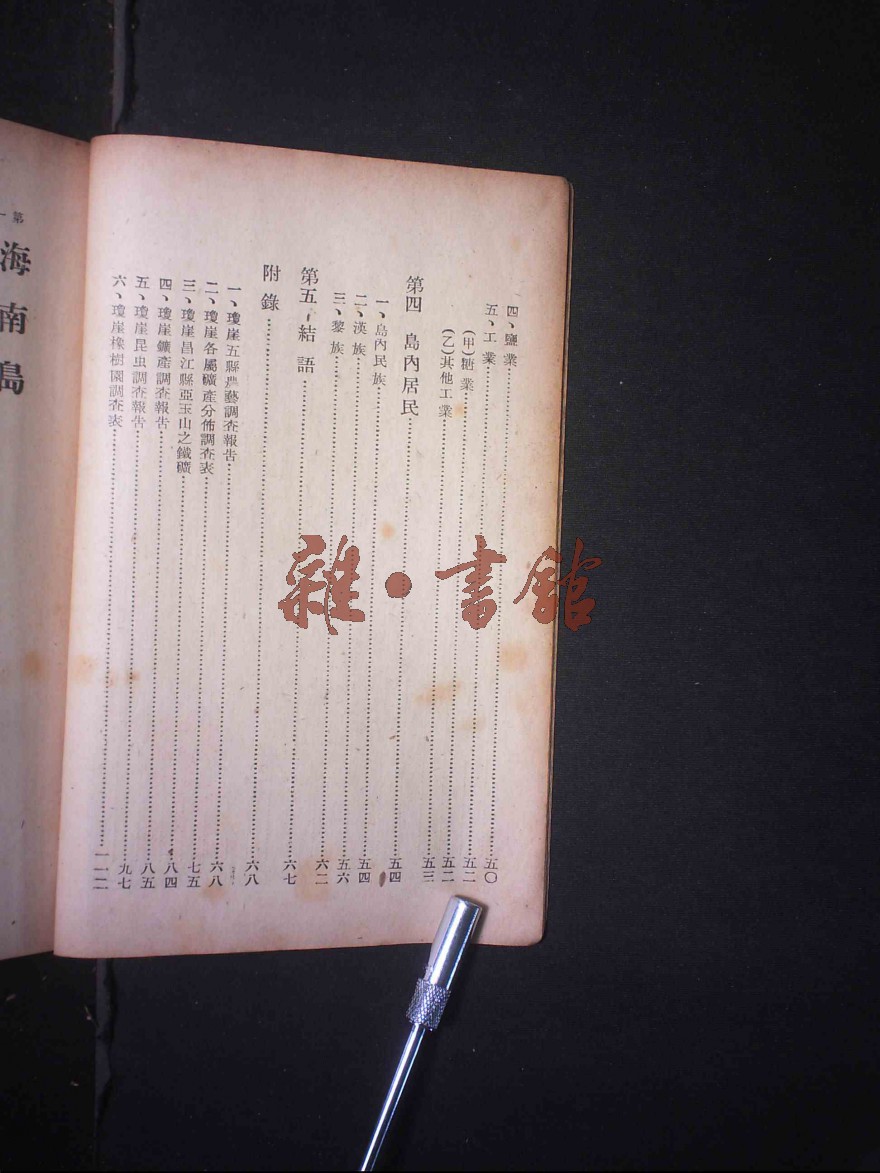 四、鹽業……五〇
五、工業……五二
(甲)糖業……五二
(乙)其他工業……五三
第四 島內居民……五四
一、島內民族……五四
二、漢族……五六
三、黎族……六二
第五、結語……六七
附錄……六八
一、瓊崖五縣農藝調查報告……六八
二、瓊崖各屬礦產分佈調查表……七五
三、瓊崖昌江縣亞玉山之鐵礦……八四
四、瓊崖鑛產調查報告……八五
五、瓊崖昆虫調查報告……九七
六、瓊崖橡樹園調查表……一一二
海南島
第一
雜·書館